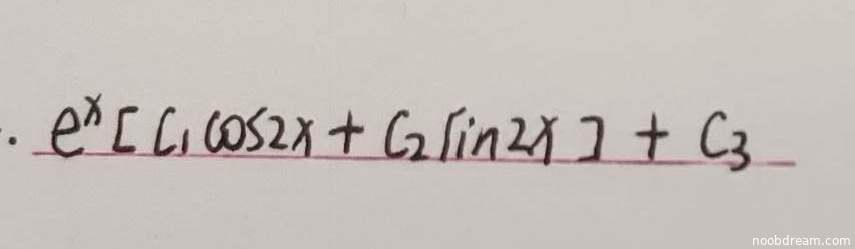 . eˣ [ C₁ cos2x + C₂ sin2x ] + C₃
noobdream.com